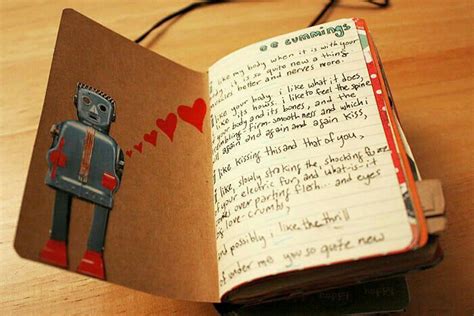 e e cummings
i like my body when it is with your
body. it is so quite new a thing
muscles better and nerves more.
i like your body. i like what it does,
i like its hows. i like to feel the spine
of your body and its bones, and the
trembling -firm-smoothness and which i
will again and again and again kiss,
i like kissing this and that of you,
i like, slowly stroking the, shocking fuzz
of your electric fur, and what-is-it
comes over parting flesh... and eyes
big love-crumbs,
and possibly i like the thrill
of under me you so quite new